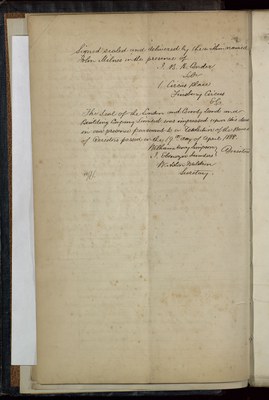 Signed sealed and delivered by the above named
John Milnes in the presence of
J. B. R. Conder
Solr
1. Circus Place
Finsbury Circus
E.C.
The Seal of the London and County Land and
Building Company Limited was impressed upon this deed
in our presence pursuant to a Resolution of the Board
of Directors passed on the 19th day of April 1888.
Directors
J. Ebenezer Saunders
Secretary.